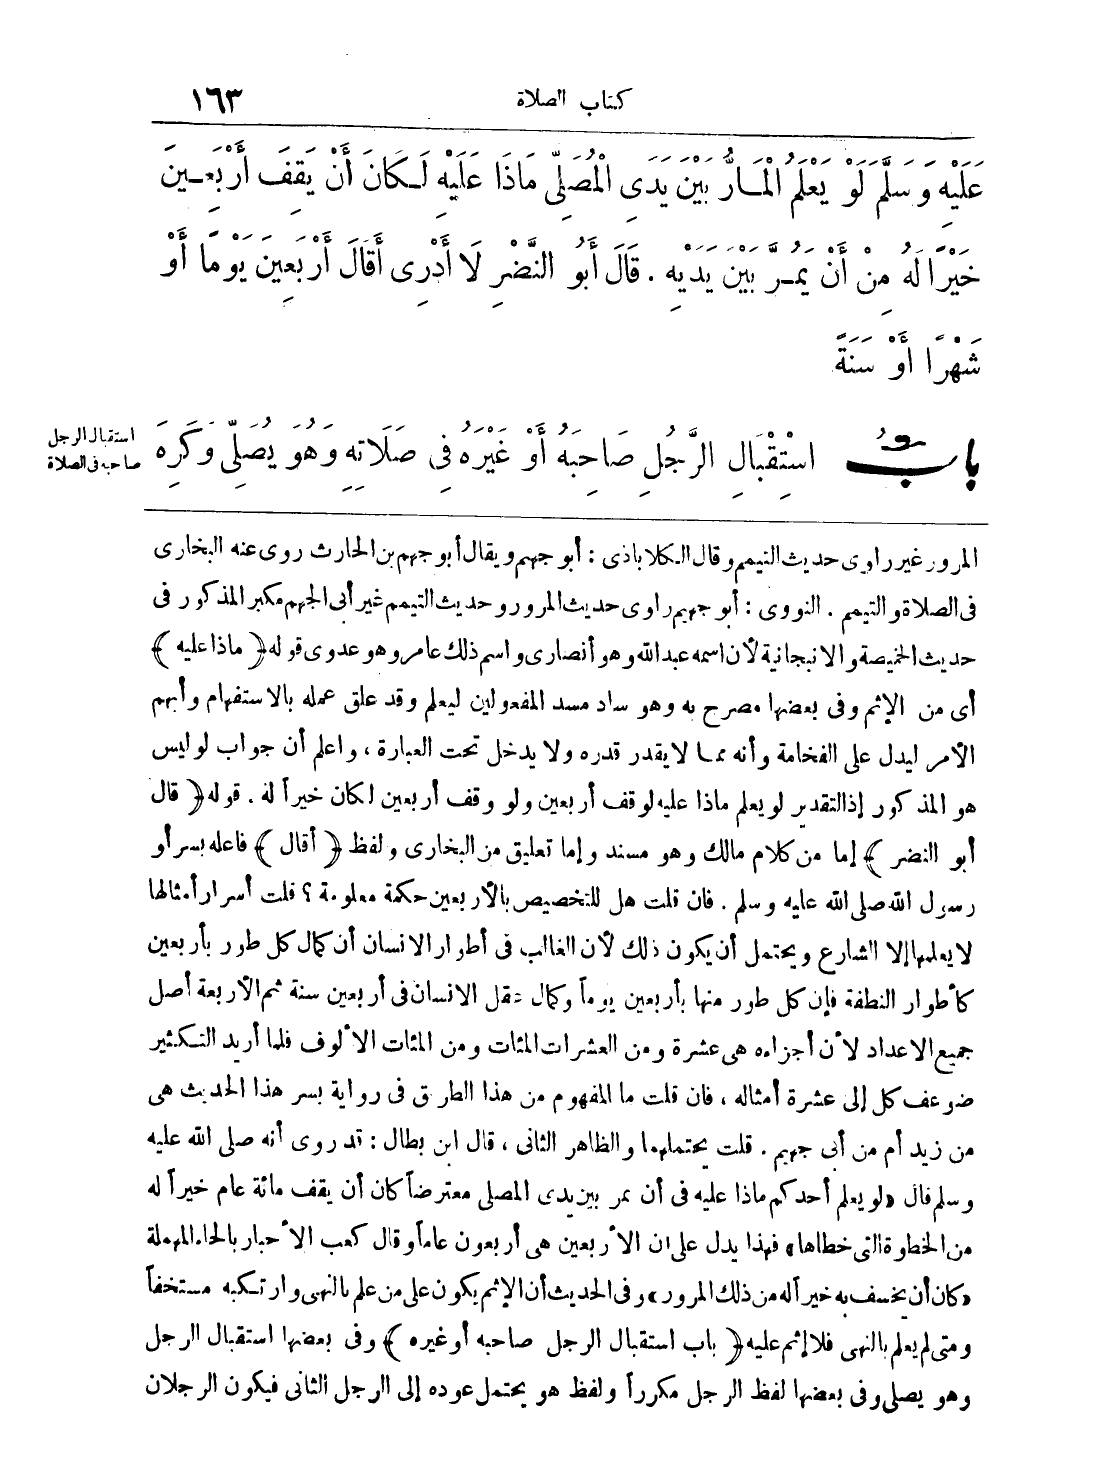 كتاب الصلاة ١٦٣
عَلَيْهِ وَسَلَّمَ لَوْ يَعْلَمُ الْمَارُّ بَيْنَ يَدَيِ الْمُصَلِّي مَاذَا عَلَيْهِ لَكَانَ أَنْ يَقِفَ أَرْبَعِينَ
خَيْرًا لَهُ مِنْ أَنْ يَمُرَّ بَيْنَ يَدَيْهِ . قَالَ أَبُو النَّضْرِ لَا أَدْرِى أَقَالَ أَرْبَعِينَ يَوْمًا أَوْ
شَهْرًا أَوْ سَنَةً
بابُ اسْتِقْبَالِ الرَّجُلِ صَاحِبَهُ أَوْ غَيْرَهُ فِى صَلَاتِهِ وَهُوَ يُصَلِّى وَكَرِهَ
استقبال الرجل
صاحبه فى الصلاة
المرور غير راوى حديث التيمم وقال الكلاباذى : أبو جهيم ويقال أبو جهم بن الحارث روى عنه البخارى
فى الصلاة والتيمم . النووى : أبو جهيم راوى حديث المرور وحديث التيمم غير أبى الجهم مكبر المذكور فى
حديث الخميصة والانبجانية لأن اسمه عبدالله وهو أنصارى واسم ذلك عامر وهو عدوى قوله ﴿ ماذا عليه ﴾
أى من الإثم وفى بعضها مصرح به وهو ساد مسد المفعولين ليعلم وقد علق عمله بالاستفهام وأبهم
الأمر ليدل على الفخامة وأنه مما لا يقدر قدره ولا يدخل تحت العبارة ، واعلم أن جواب لو ليس
هو المذكور إذ التقدير لو يعلم ماذا عليه لوقف أربعين ولو وقف أربعين لكان خيراً له . قوله ﴿ قال
أبو النضر ﴾ إما من كلام مالك وهو مسند وإما تعليق من البخارى ولفظ ﴿ أقال ﴾ فاعله بسر أو
رسول الله صلى الله عليه وسلم . فان قلت هل للتخصيص بالأربعين حكمة معلومة ؟ قلت أسرار أمثالها
لا يعلمها إلا الشارع ويحتمل أن يكون ذلك لأن الغالب فى أطوار الانسان أن كمال كل طور بأربعين
كأطوار النطفة فإن كل طور منها بأربعين يوماً وكمال عقل الانسان فى أربعين سنة ثم الأربعة أصل
جميع الاعداد لأن أجزاءه هى عشرة ومن العشرات المئات ومن المئات الألوف فلما أريد التكثير
ضوعف كل إلى عشرة أمثاله ، فان قلت ما المفهوم من هذا الطريق فى رواية بسر هذا الحديث هى
من زيد أم من أبى جهيم . قلت يحتملهما والظاهر الثانى ، قال ابن بطال : قد روى أنه صلى الله عليه
وسلم قال «لو يعلم أحدكم ماذا عليه فى أن يمر بين يدى المصلى معترضاً كان أن يقف مائة عام خيراً له
من الخطوة التى خطاها» فهذا يدل على ان الأربعين هى أربعون عاماً وقال كعب الأحبار بالحاء المهملة
«كان أن يخسف به خيراً له من ذلك المرور» وفى الحديث أن الإثم يكون على من علم بالنهى وارتكبه مستخفاً
ومتى لم يعلم بالنهى فلا إثم عليه ﴿ باب استقبال الرجل صاحبه أو غيره ﴾ وفى بعضها استقبال الرجل
وهو يصلى وفى بعضها لفظ الرجل مكرراً ولفظ هو يحتمل عوده إلى الرجل الثانى فيكون الرجلان